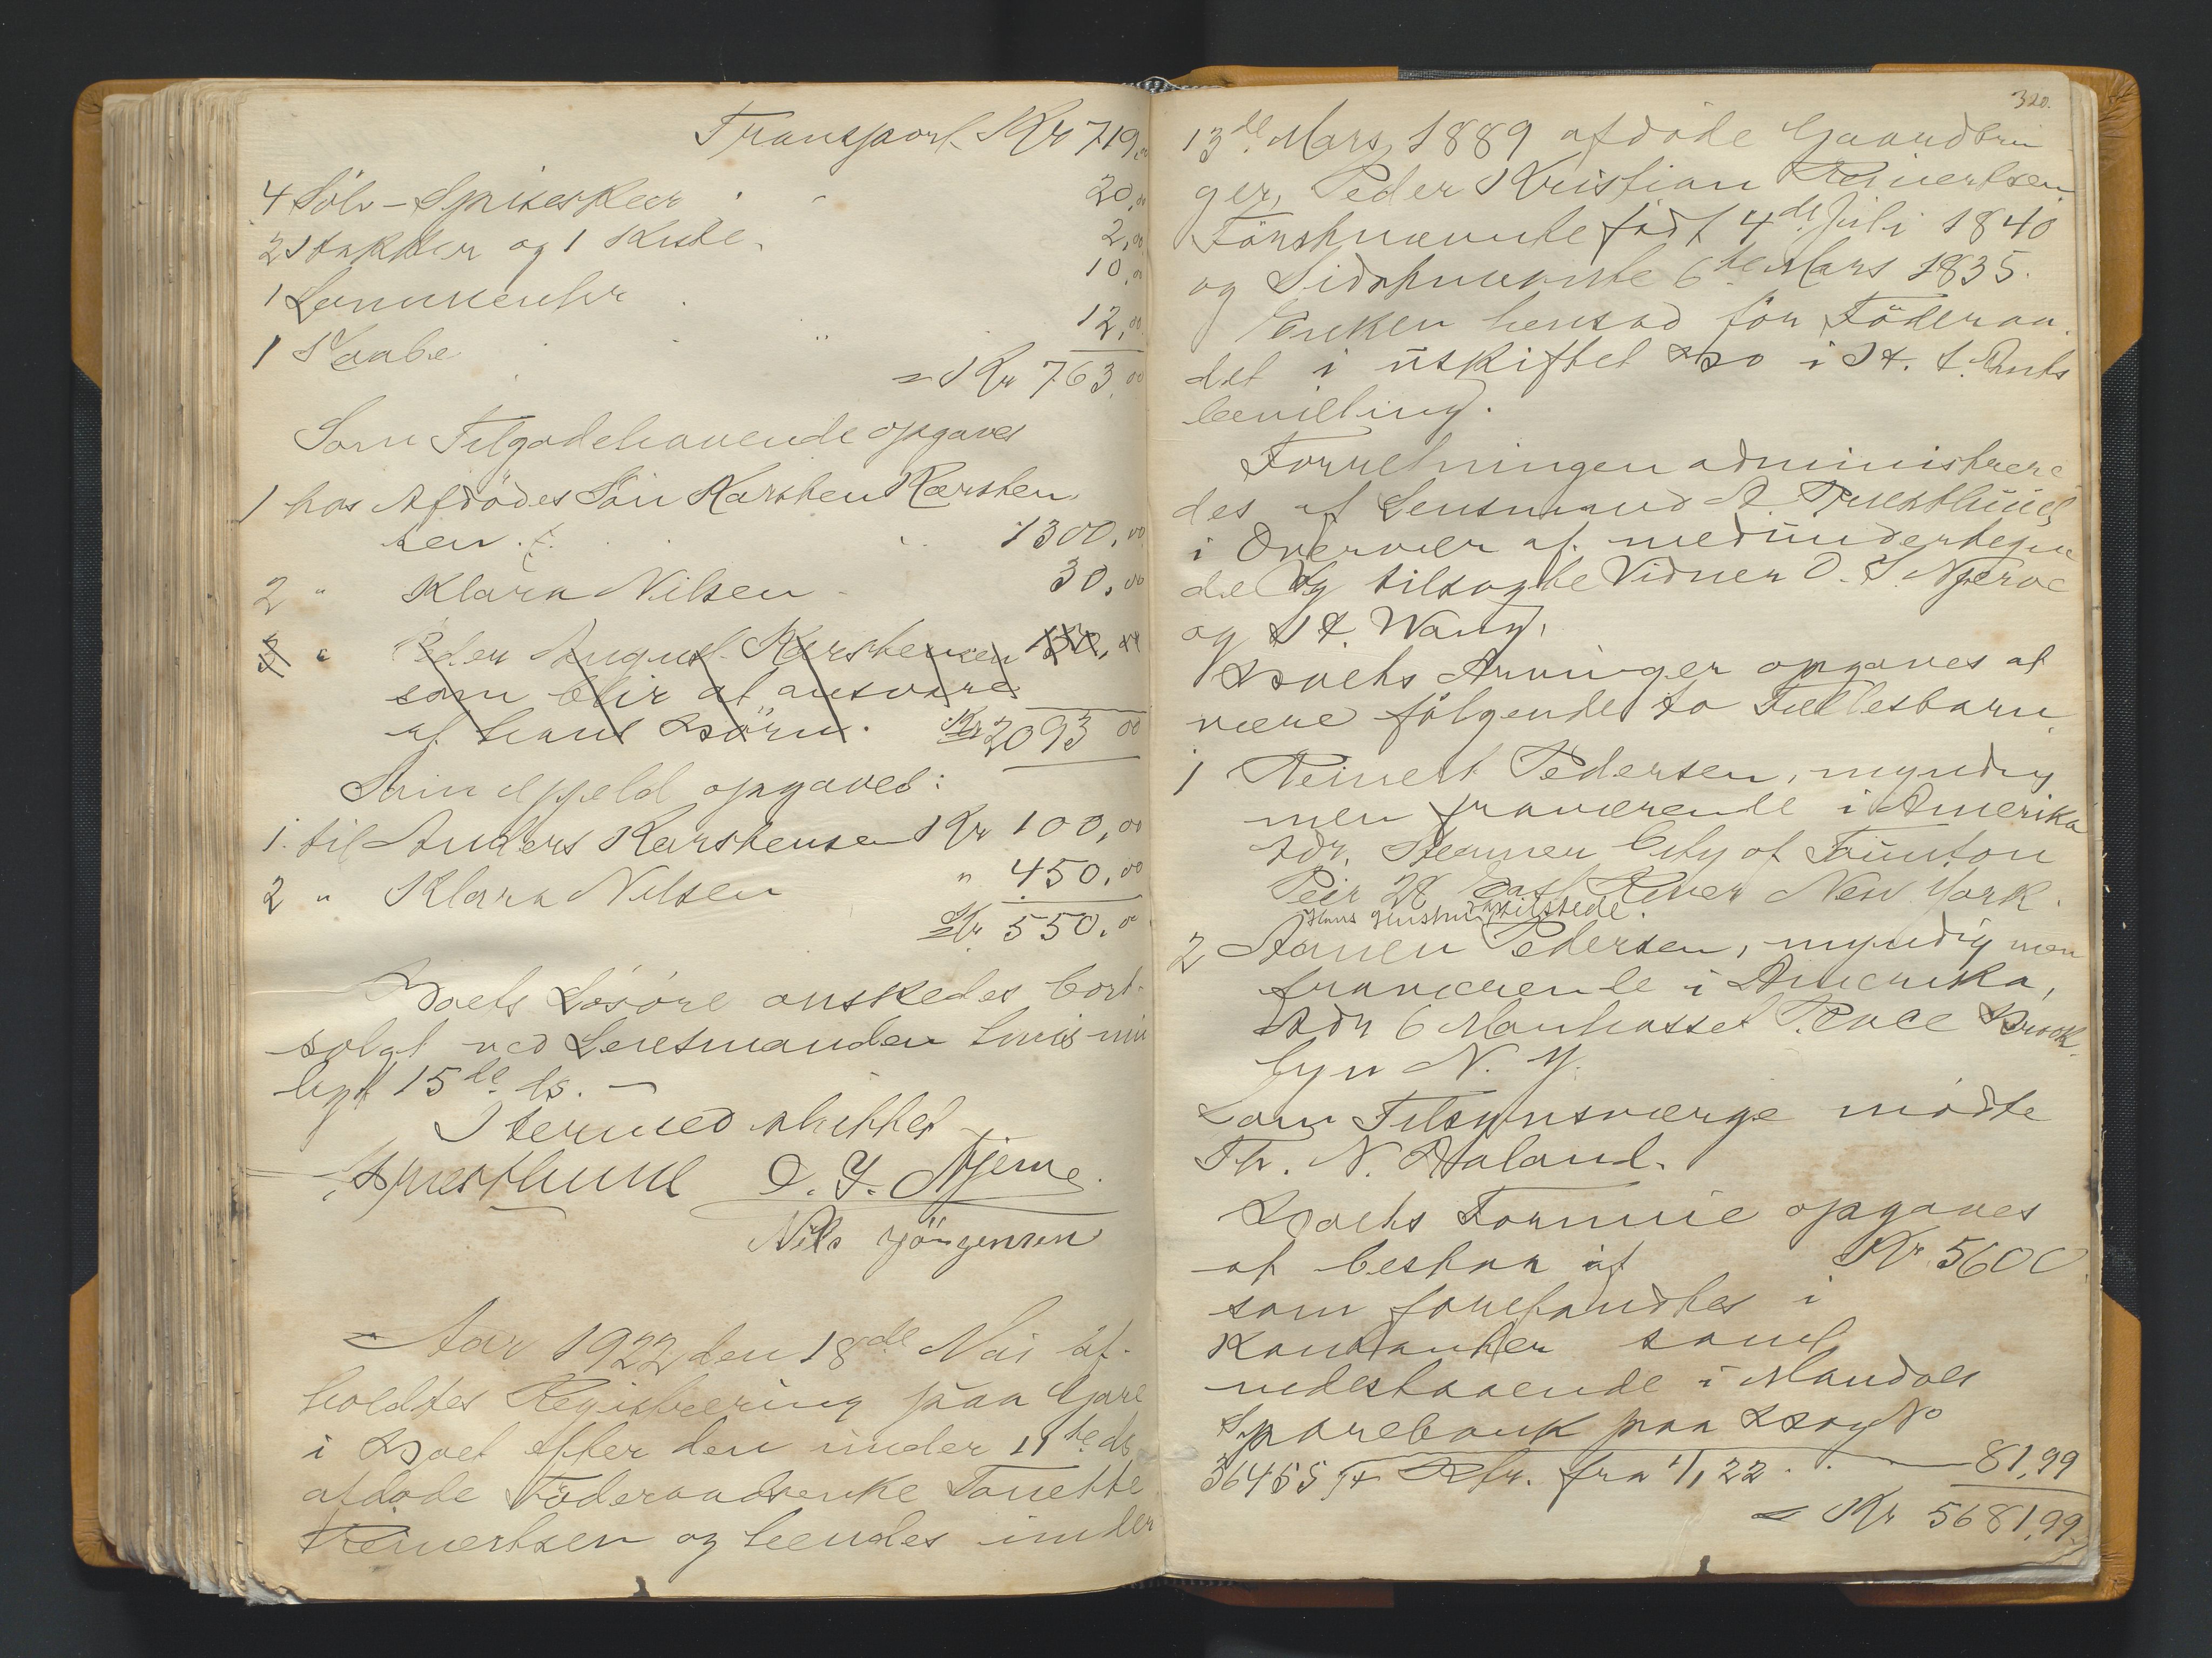 Transport Kr 719,00
4 Sölv-Spiseskeer 20,00
2 Stakker og 1 Kiste 2,00
1 Lommeuhr 10,00
1 Kaabe 12,00
= Kr 763,00
Som Tilgodehavende opgaves
1 hos Afdödes Sön Karsten Karsten
sen 1300,00
2 " Klara Nilsen 30,00
3 " Peder August Karstensen
som blir at ansvare
af hans Börn. Kr 2093 00
Som Gjæld opgaves:
1. til Anders Karstensen Kr 100,00
2 " Klara Nilsen " 450,00
Kr 550,00
Boets Lösöre önskedes bort-
solgt ved Lensmanden
15de ds.
Hermed sluttet
O. J. Njerve
Nils Jörgensen
Aar 1922 den 18de Mai af-
holdtes Registrering paa
i Boet efter den under 11te ds
afdöde Föderaadsenke Tonette
Reinertsen og hendes under
320.
13de Mars 1889 afdöde Gaardbru
ger, Peder Kristian Reinertsen
Förstnævnte födt 4de Juli 1840
og Sidstnævnte 6te Mars 1835.
Enken hensad for Föderaa-
det i uskiftet Bo i H. t. Amts
bevilling.
Forretningen administrere
des af Lensmand A. Prestlund,
i Overvær af medundertegne
de og tilsagte Vidner O. J. Njerve
og H. Wang.
Boets Arvinger opgaves at
være fölgende to Fællesbarn
1 Reinert Pedersen, myndig
men fraværende i Amerika
Adr. Steamer City of Taunton
Peir 28 East River New York.
Hans Hustru tilstede.
2 Hanen Pedersen, myndig men
fraværende i Amerika,
Adr 6 Manhasset Place Brook-
lyn N. Y.
Som Tilsynsværge mödte
Th. N. Haaland.
Boets Formue opgaves
at bestaa af Kr. 5600
som forefandtes i
Kontanter samt
indestaaende i Mandals
Sparebank paa Bog No
36455 + Rtr. fra 1/1 22 81,99
= Kr 5681,99